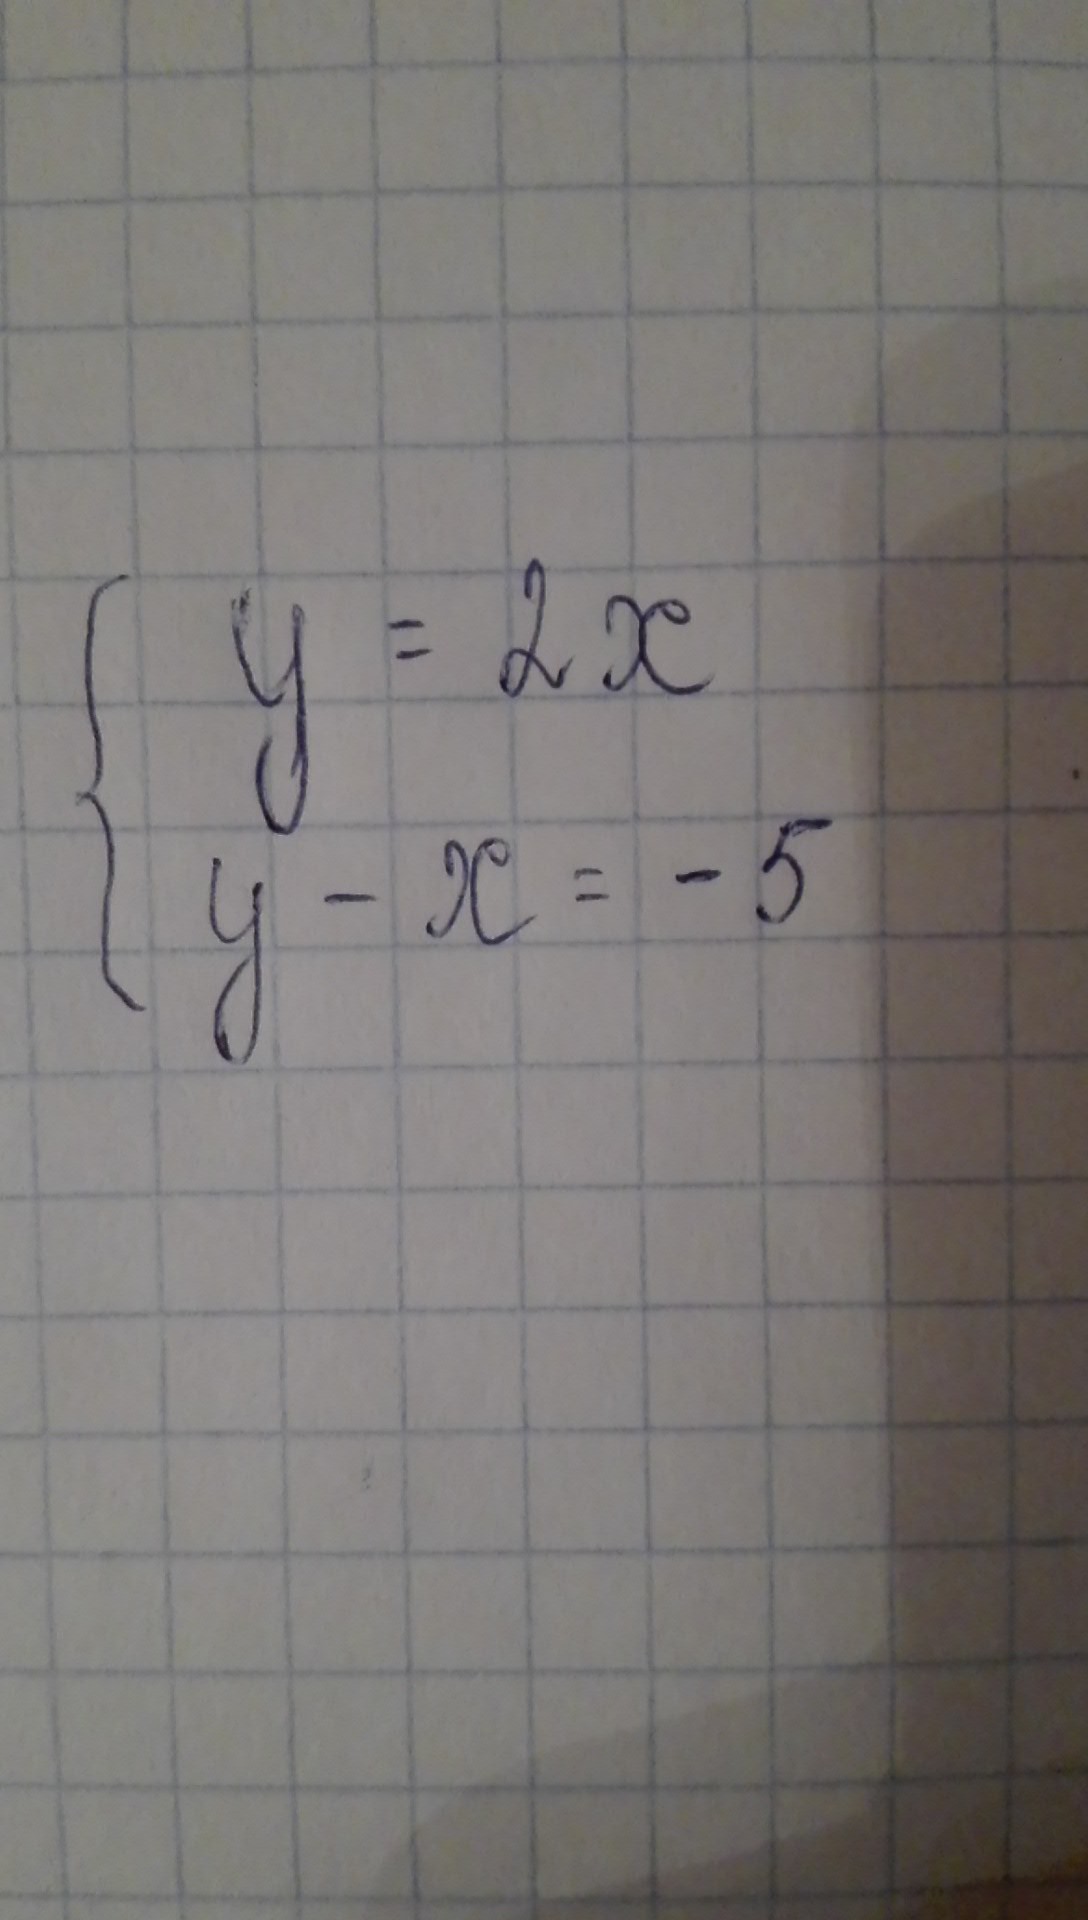 y = 2x
y - x = - 5